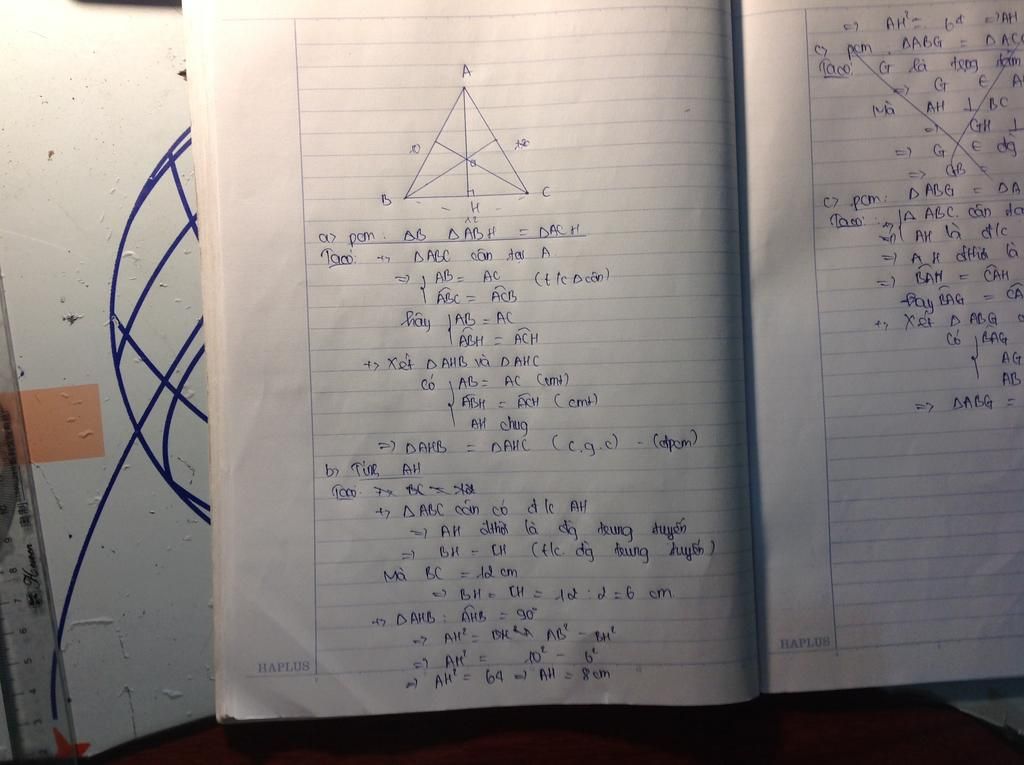 A
10
10
G
B
H
C
12
a> pcm : ΔB ΔABH = ΔACH
Taco: +> ΔABC cân tại A
=> { AB = AC (t/c Δ cân)
ABC = ACB
hãy { AB = AC
ABH = ACH
+> Xét ΔAHB và ΔAHC
có { AB = AC (cmt)
ABH = ACH (cmt)
AH chug
=> ΔAHB = ΔAHC (c.g.c) - (đpcm)
b> Tính AH
Taco: BC =
+> ΔABC cân có đ/c AH
=> AH đthời là đg trung tuyến
=> BH = CH (t/c đg trung tuyến)
Mà BC = 12 cm
=> BH = CH = 12 : 2 = 6 cm
+> ΔAHB : AHB = 90°
=> AH² = AB² - BH²
=> AH² = 10² - 6²
=> AH² = 64 => AH = 8cm
HAPLUS
=> AH² = 64 => AH
c> pcm : ΔABG = ΔAC
Taco: G là trọng tâm
=> G ∈ A
Mà AH ⊥ BC
=> GH ⊥
=> G ∈ đg
=> GB =
c> pcm : ΔABG = ΔA
Taco: +> { ΔABC cân tại
=> AH là đ/c
=> AH đthời là
=> BAH = CAH
hay BAG = CA
+> Xét ΔABG
có { BAG
AG
AB
=> ΔABG =
HAPLUS